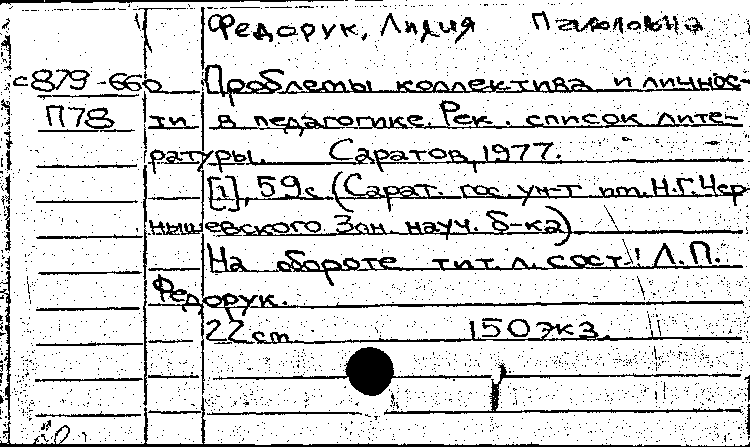 Федорук, Лидия Павловна
с879-660 Проблемы коллектива и личнос-
П78 ти в педагогике. Рек. список лите-
ратуры. Саратов, 1977.
[1], 59с. (Сарат. гос. ун-т им. Н.Г. Чер
нышевского Зон. науч. б-ка)
На обороте тит. л. сост.: Л.П.
Федорук.
22 cm 150 экз.